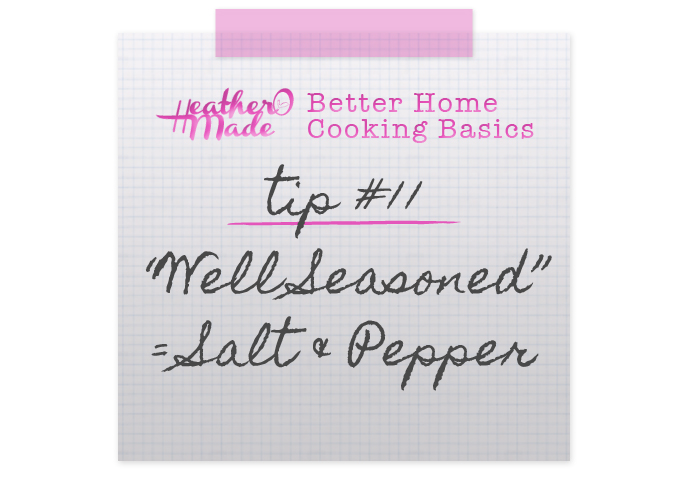 HeatherO
Made
Better Home
Cooking Basics
tip #11
"Well Seasoned"
= Salt & Pepper